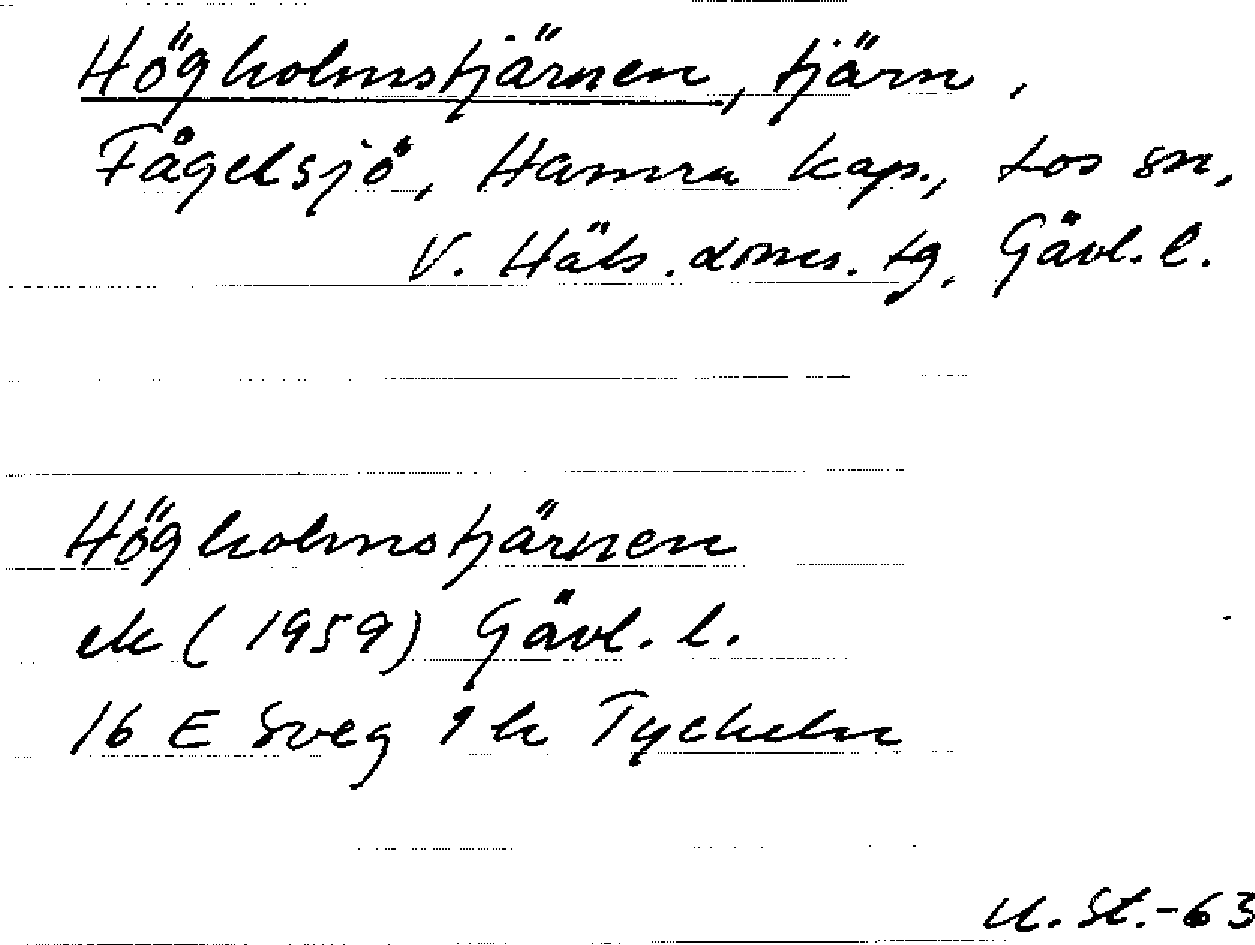 Högholmstjärnen, tjärn,
Fågelsjö, Hamra kap., Los sn,
V. Häls. doms. tg, Gävl. l.
Högholmstjärnen
ek (1959) Gävl. l.
16 E Sveg 1 h Tyckeln
U. St.-63